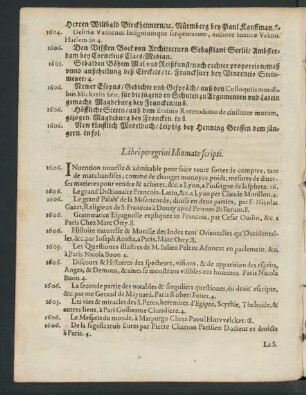 Herren Wilibald Birckheimern/ꝛc. Nürmberg bey Paul Kauffman. f.
1604. Deliriu Vatinianū Insigniumque scriptorarum, auctore
Harlem in 4.
1606. Den Vijfften Boeck von Architecturen Sebastiani Serlii/ Amsterdam bey Cornelius Claes/Median.
1605. Sebalden Böhen Mal und Reißkunst/nach rechter proportion/maß
vnnd außtheilung deß Circkels ꝛc. Franckfurt bey Vincentio Steinmeyer/4.
1605. Newer Esopus/ Gedichte vnd Gespräch/ auß den Colloquiis
für die jugend in Schulen zu Argumenten vnd latein
gemacht Magdeburg bey Francken in 8.
1606. Höfflliche Sitten/ auß dem Erasmo Roterodamo de civilitate morum,
gezogen Magdeburg bey Francken in 8.
1606. New künstlich Modelbuch/ Leiptzig bey Henning Grossen dem jüngern. in fol.
Libri peregrini Idiomate scripti.
Invention nouelle & admirable pour faire toute sortes de comptes, tant
de marchandises, comme de changer monoyes, poids, mesures de diuerses matieres pour vendre & acheter, &c. a Lyon, a l'insigne de la sphere. 16.
1606. Le grand Dictionaire François-Latin, &c. a Lyon par Claude Morillon. 4.
1606. Le grand Palais de la Misericorde, diuisé en deux parties, par F. Nicolas
Gazet, Religieux de S. François à Douay apud Petrum Bellerum. 8.
1606. Grammatice Espagnolle expliquee in François, par Cesar Oudin, &c. a
Paris Chez Marc Orry. 8.
1606. Histoire naturelle & Moralle des Indes tant Orientalles qu'Occidentalles, &c. par Ioseph Acosta, a Paris, Marc Orry. 8.
1603. Les Questions illustres de M. Iulien Peleus Aduocat en parlement, &c.
à Paris Nicola Buon 4.
1606. Discours & Histoires des spectres, visions, & de apparition des esprits,
Anges, & Demons, & ames se monstrans visibles aux hommes. Paris Nicola
Buon. 4.
1606. La seconde partie des notables & singuliers questiones, du droict escript,
&c. par me Geraud de Maynard. Paris Robert Fouet. 4.
1603. Les vies & miracles des S. Peres, heremites d'Egipte, Scythie, Thebaide, &
autres lieux, à Pari Guillaume Chaudiere. 4.
1604. Le Mespris du monde, à Marpurgo Chez Paoul Hutwvelcker.
1606. De la sagesse trais liures par Pierre Charron Parisien Docteur es droicts
à Paris. 4.
La S.